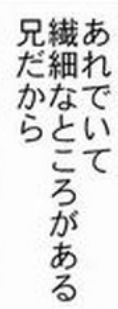 あれでいて
繊細なところがある
兄だから